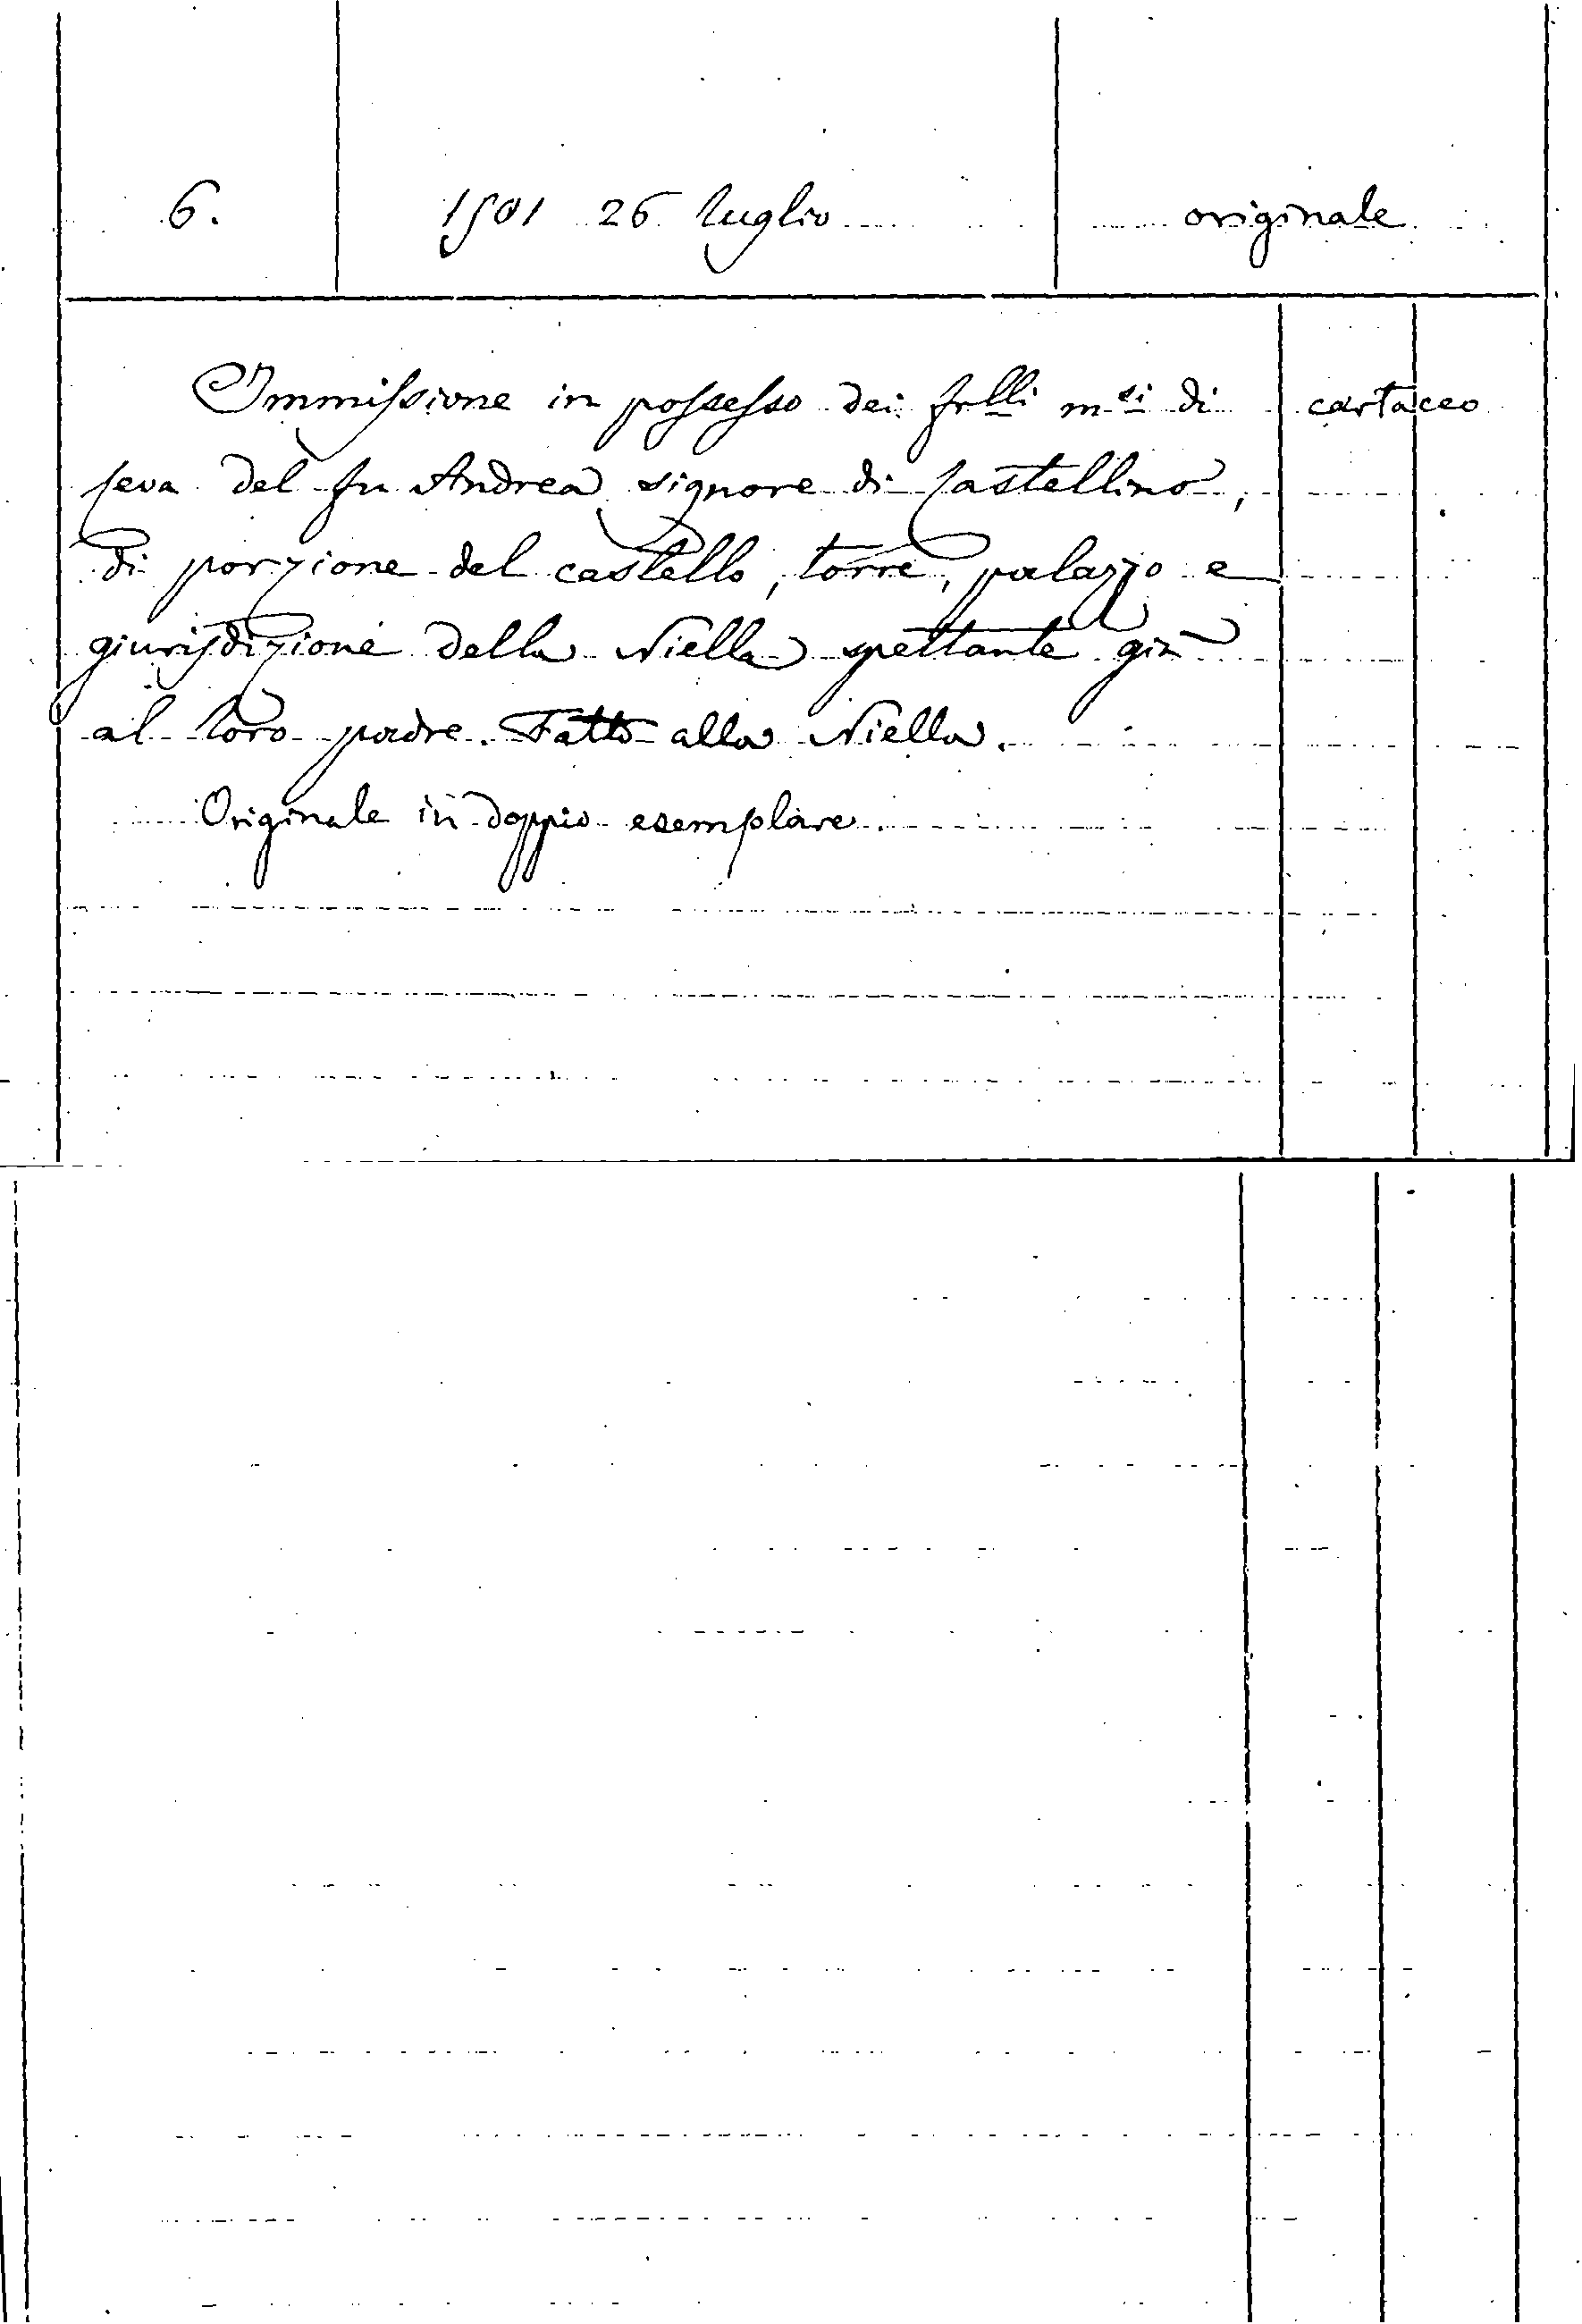 6. 1501 26 luglio originale
Immissione in possesso dei frlli msi di cartaceo
Ceva del fu Andrea signore di Castellino,
di porzione del castello, torre, palazzo e
giurisdizione della Niella spettante già
al loro padre. Fatto alla Niella.
Originale in doppio esemplare.